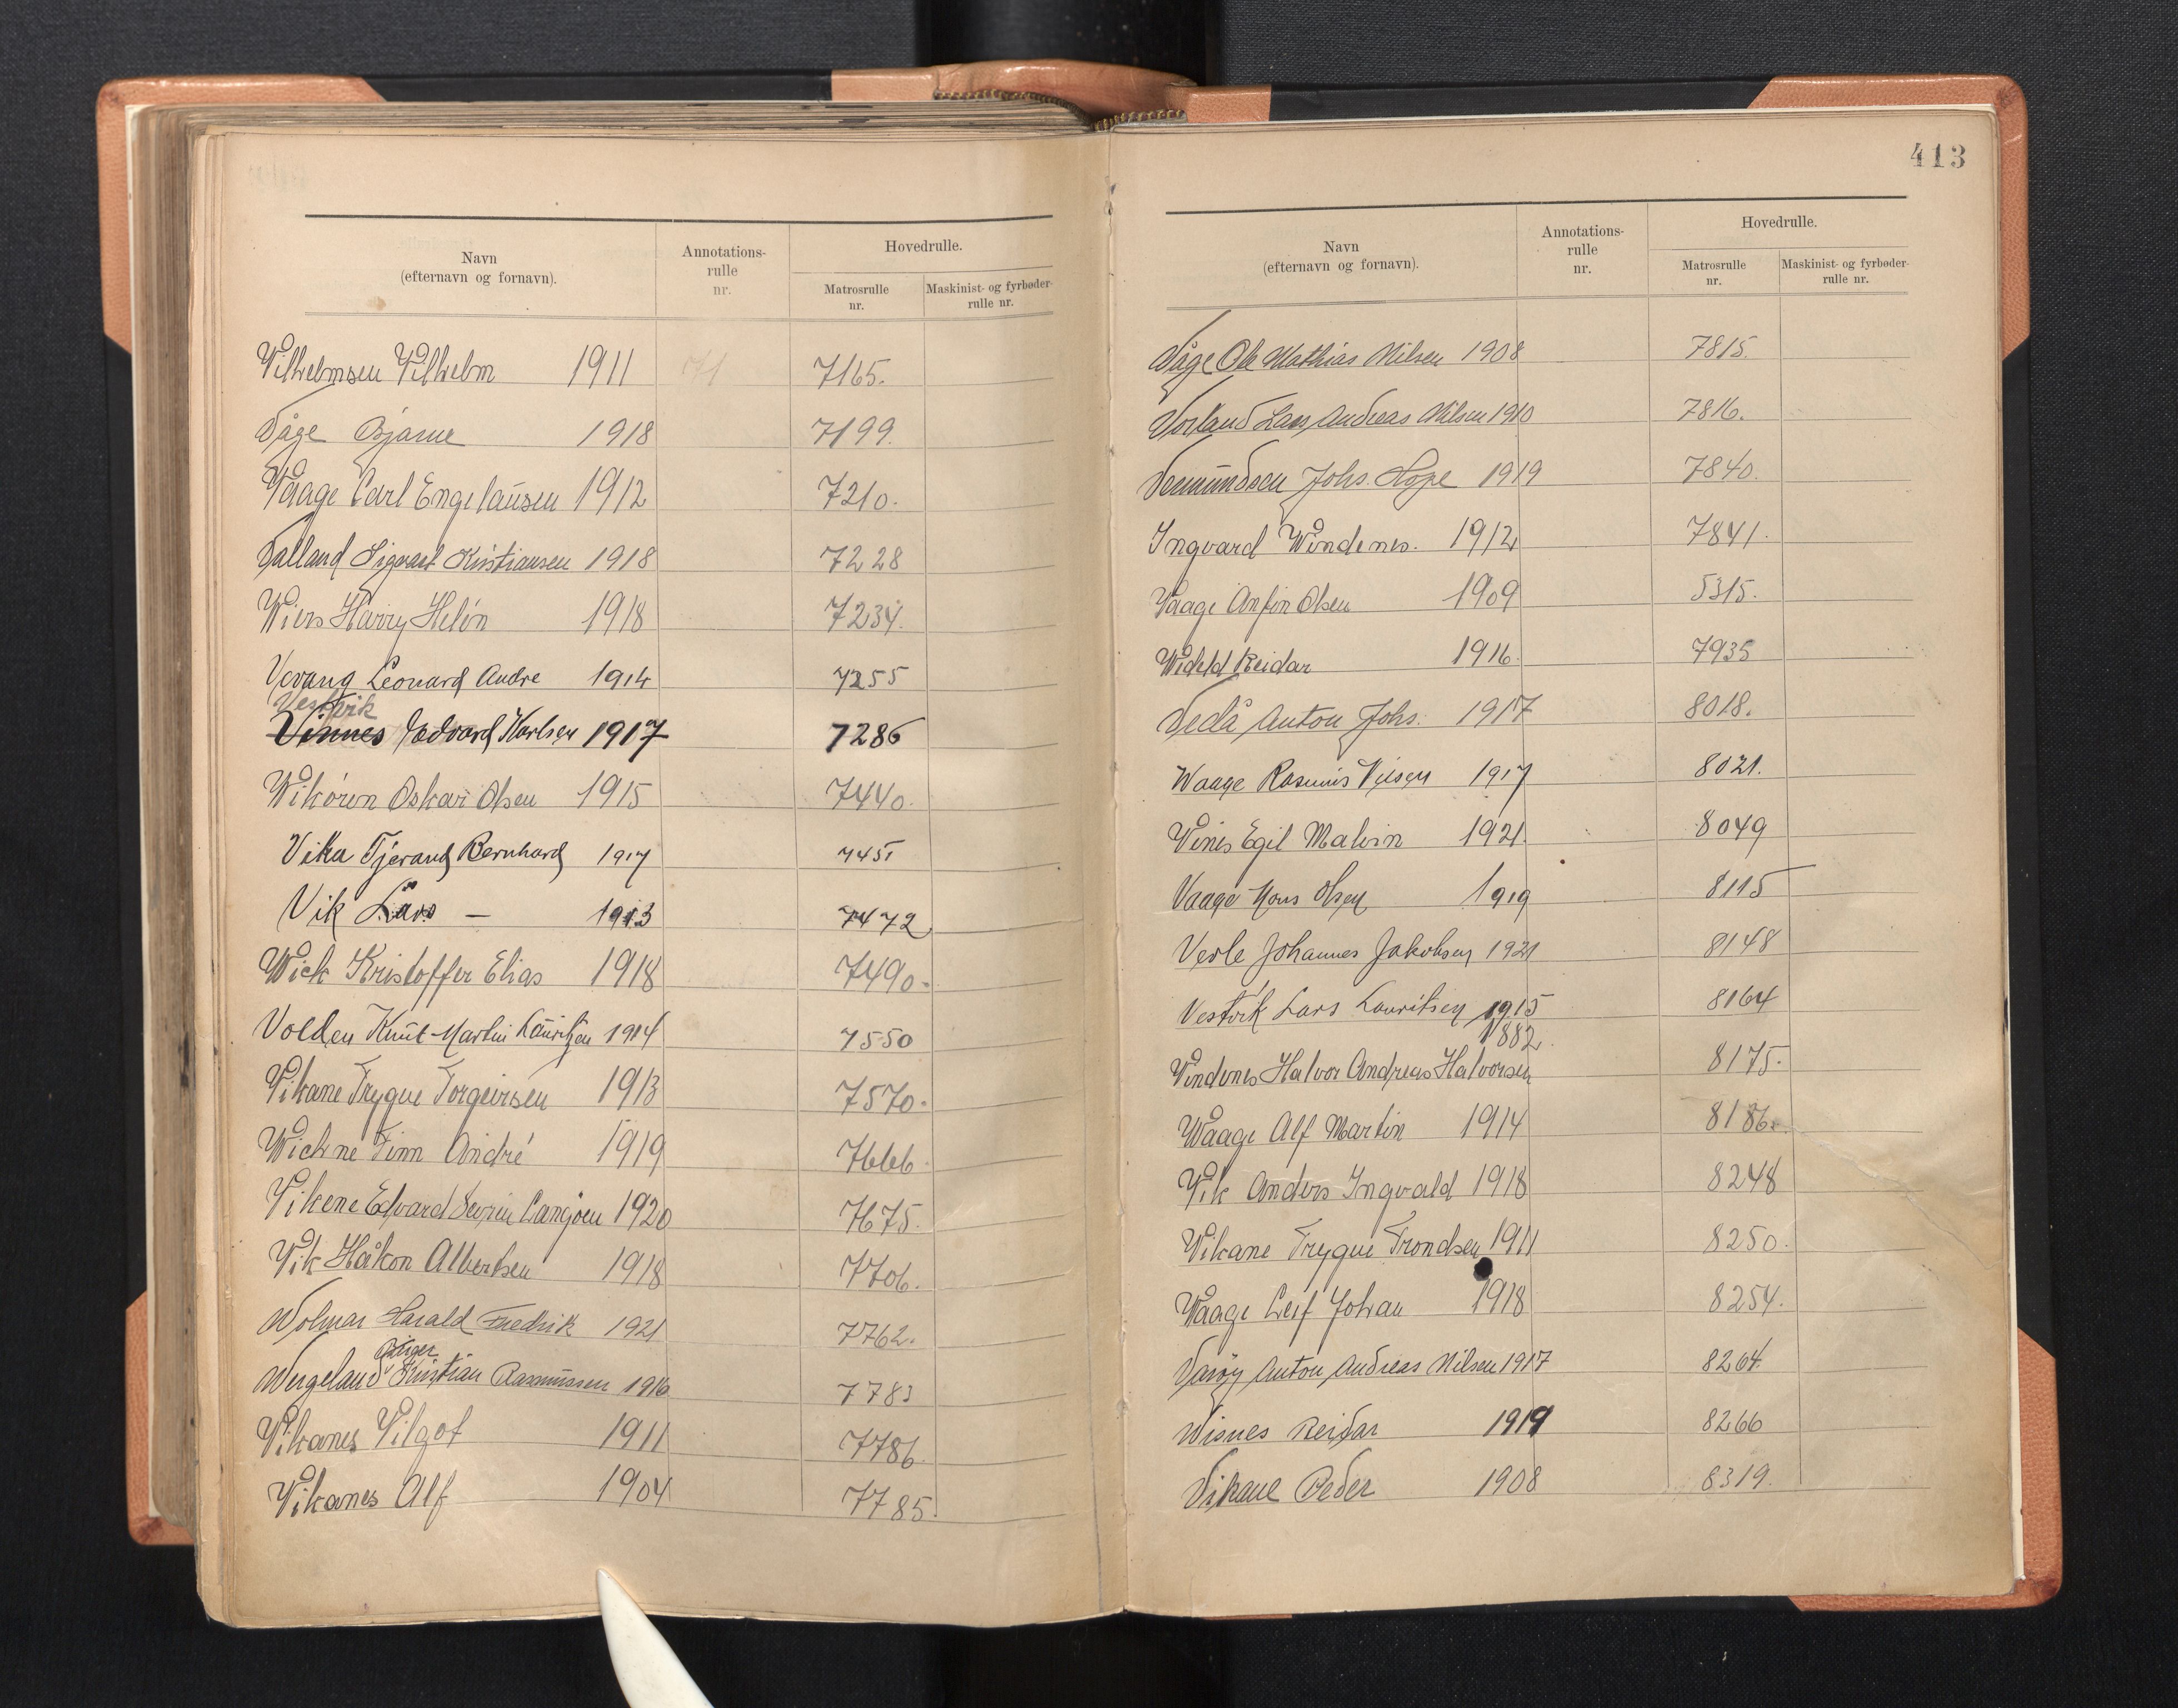 Navn
(efternavn og fornavn).
Annotations-
rulle
nr.
Hovedrulle.
Matrosrulle
nr.
Maskinist- og fyrbøder-
rulle nr.
Wilhelmsen Wilhelm 1911 71 7165.
Våge Bjarne 1918 7199.
Waage Carl Engelausen 1912 7210.
Valland Sigvart Kristiansen 1918 7228
Wiers Harry Helén 1918 7234.
Vevang Leonard Andre 1914 7255
Vestvik
Vinnes Edvard Karlsen 1917 7286
Wikören Oskar Olsen 1915 7440.
Vika Tjerand Bernhard 1917 7451
Vik Lars — 1913 7472
Wick Kristoffer Elias 1918 7490.
Volden Knut-Martin Lauritzen 1914 7550
Vikane Trygve Torgeirsen 1913 7570.
Wichne Finn André 1919 7666.
Vikene Edvard Sevrin 1920 7675.
Vik Håkon Albertsen 1918 7706.
Wolmar Harald Fredrik 1921 7762.
Birger
Wergeland Kristian Rasmussen 1916 7783
Vikanes Vilgot 1911 7786.
Vikanes Alf 1904 7785.
413
Navn
(efternavn og fornavn).
Annotations-
rulle
nr.
Hovedrulle.
Matrosrulle
nr.
Maskinist- og fyrbøder-
rulle nr.
Våge Ole Mathias Nilsen 1908 7815.
Vorland Lars Andreas Nilsen 1910 7816.
Vemundsen Johs. Hope 1919 7840.
Ingvard Windenes. 1912 7841.
Vaage Anfin Olsen 1909 5315.
Reidar 1916. 7935
Vedå Anton Johs. 1917 8018.
Waage Rasmus 1917 8021.
Vines Egil Malvin 1921. 8049
Vaage Mons Olsen 1919 8115
Verle Johannes Jakobsen 1921 8148
Vestvik Lars Lauritsen 1915 8164
1882.
Vindenes Halvor Andreas Halvorsen 8175.
Waage Alf Martin 1914 8186.
Vik Anders Ingvald 1918 8248
Vikane Trygve Trondsen 1911 8250.
Waage Leif Johan 1918 8254.
Varöy Anton Andreas Nilsen 1917 8264.
Wisnes Reidar 1919 8266
Vikane Peder 1908 8319.